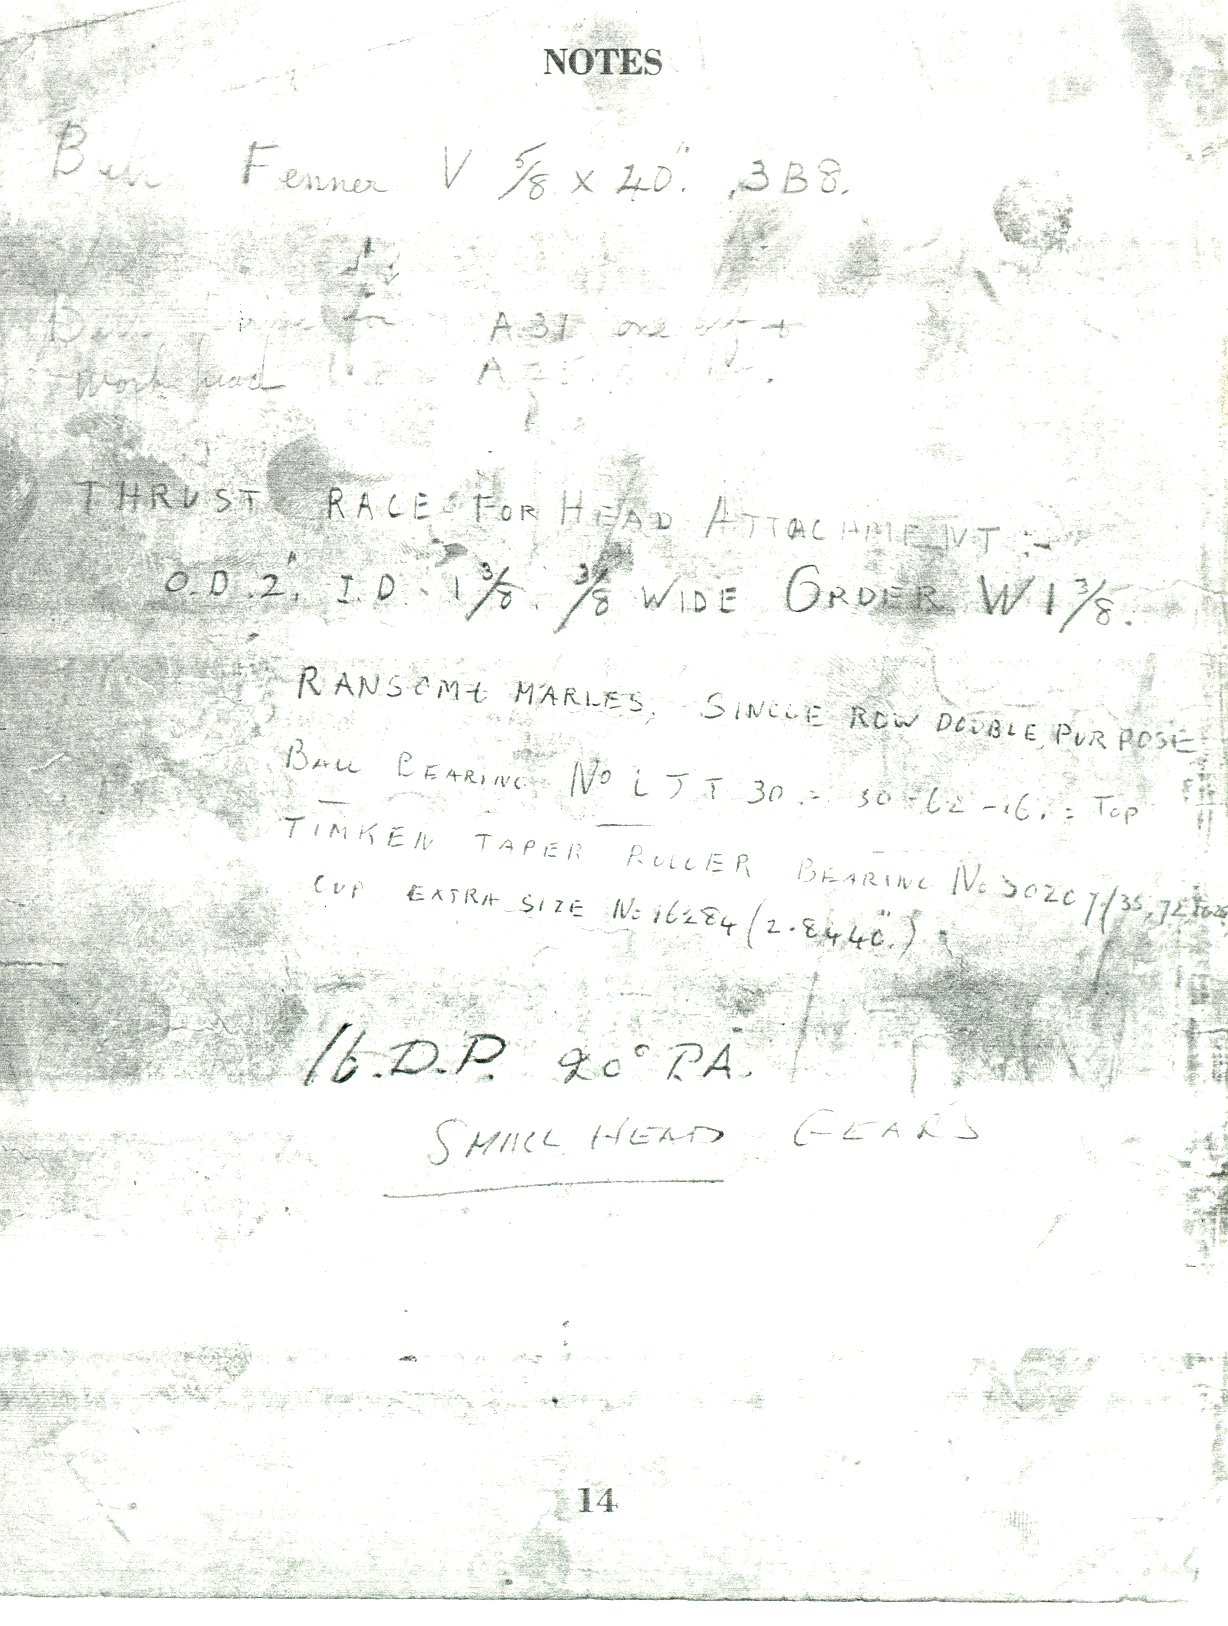 NOTES
Fenner V 5/8 x 40". 3B8.
A.31 one off +
Work head A
THRUST RACE FOR HEAD ATTACHMENT :-
O.D. 2". I.D. 1 3/8. 3/8 WIDE ORDER W1 3/8.
RANSOME MARLES, SINGLE ROW DOUBLE PURPOSE
BALL BEARING No LJT 30. = 30-62-16. = TOP
TIMKEN TAPER ROLLER BEARING No 30207/35, 72
CUP EXTRA SIZE No 16284 (2.8440".)
16.D.P. 20° P.A.
SMALL HEAD GEARS
14